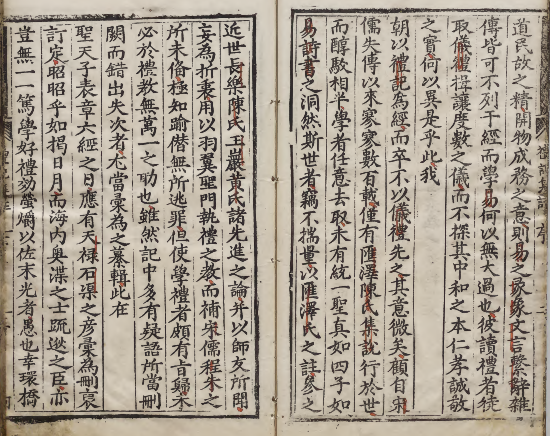 道民故之精開物成務之意則易之彖象文言繫辭雜
傳皆可不列于經而學易何以無大過也彼讀禮者徒
取儀禮揖讓度數之儀而不探其中和之本仁孝誠敬
之實何以異是乎此我
朝以禮記為經而卒不以儀禮先之其意微矣顧自宋
儒失傳以來寥寥數百載僅有匯澤陳氏集說行於世
而醇駁相半學者任意去取未有統一聖真如四子如
易詩書之洞然斯世者竊不揣量以匯澤氏之註參之
近世長樂陳氏玉巖黃氏諸先進之論并以師友所聞
妄為折衷用以羽翼聖門執禮之教而補宋儒程朱之
所未俻極知踰僭無所逃罪但使學禮者頗有言歸未
必於禮教無萬一之助也雖然記中多有疑語所當刪
闕而錯出失次者尤當彙為之纂輯此在
聖天子表章六經之日應有天祿石渠之彦彙為刪裒
訂定昭昭乎如揭日月而海內奧渫之士疏逖之臣亦
豈無一篤學好禮効螢爝以佐末光者愚也幸環橋